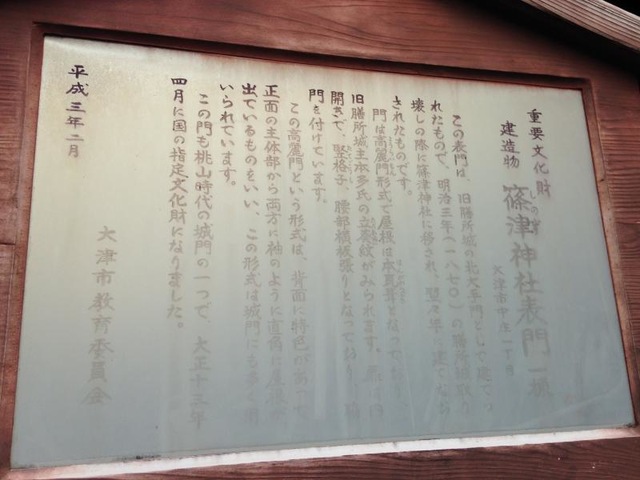 重要文化財
建造物 篠津神社表門 一棟
しのづ
大津市中庄一丁目
この表門は、旧膳所城の北大手門として建てら
れたもので、明治三年(一八七〇)の膳所城取り
壊しの際に篠津神社に移され、翌々年に建てなお
されたものです。
門は高麗門形式で屋根は本瓦葺となっており、
旧膳所城主本多氏の立葵紋がみられます。扉は内
開きで、竪格子、腰部横板張りとなっており、脇
門を付けています。
この高麗門という形式は、背面に特色があって
正面の主体部から両方に袖のように直角に屋根が
出ているものをいい、この形式は城門にも多く用
いられています。
この門も桃山時代の城門の一つで、大正十三年
四月に国の指定文化財になりました。
平成三年二月
大津市教育委員会